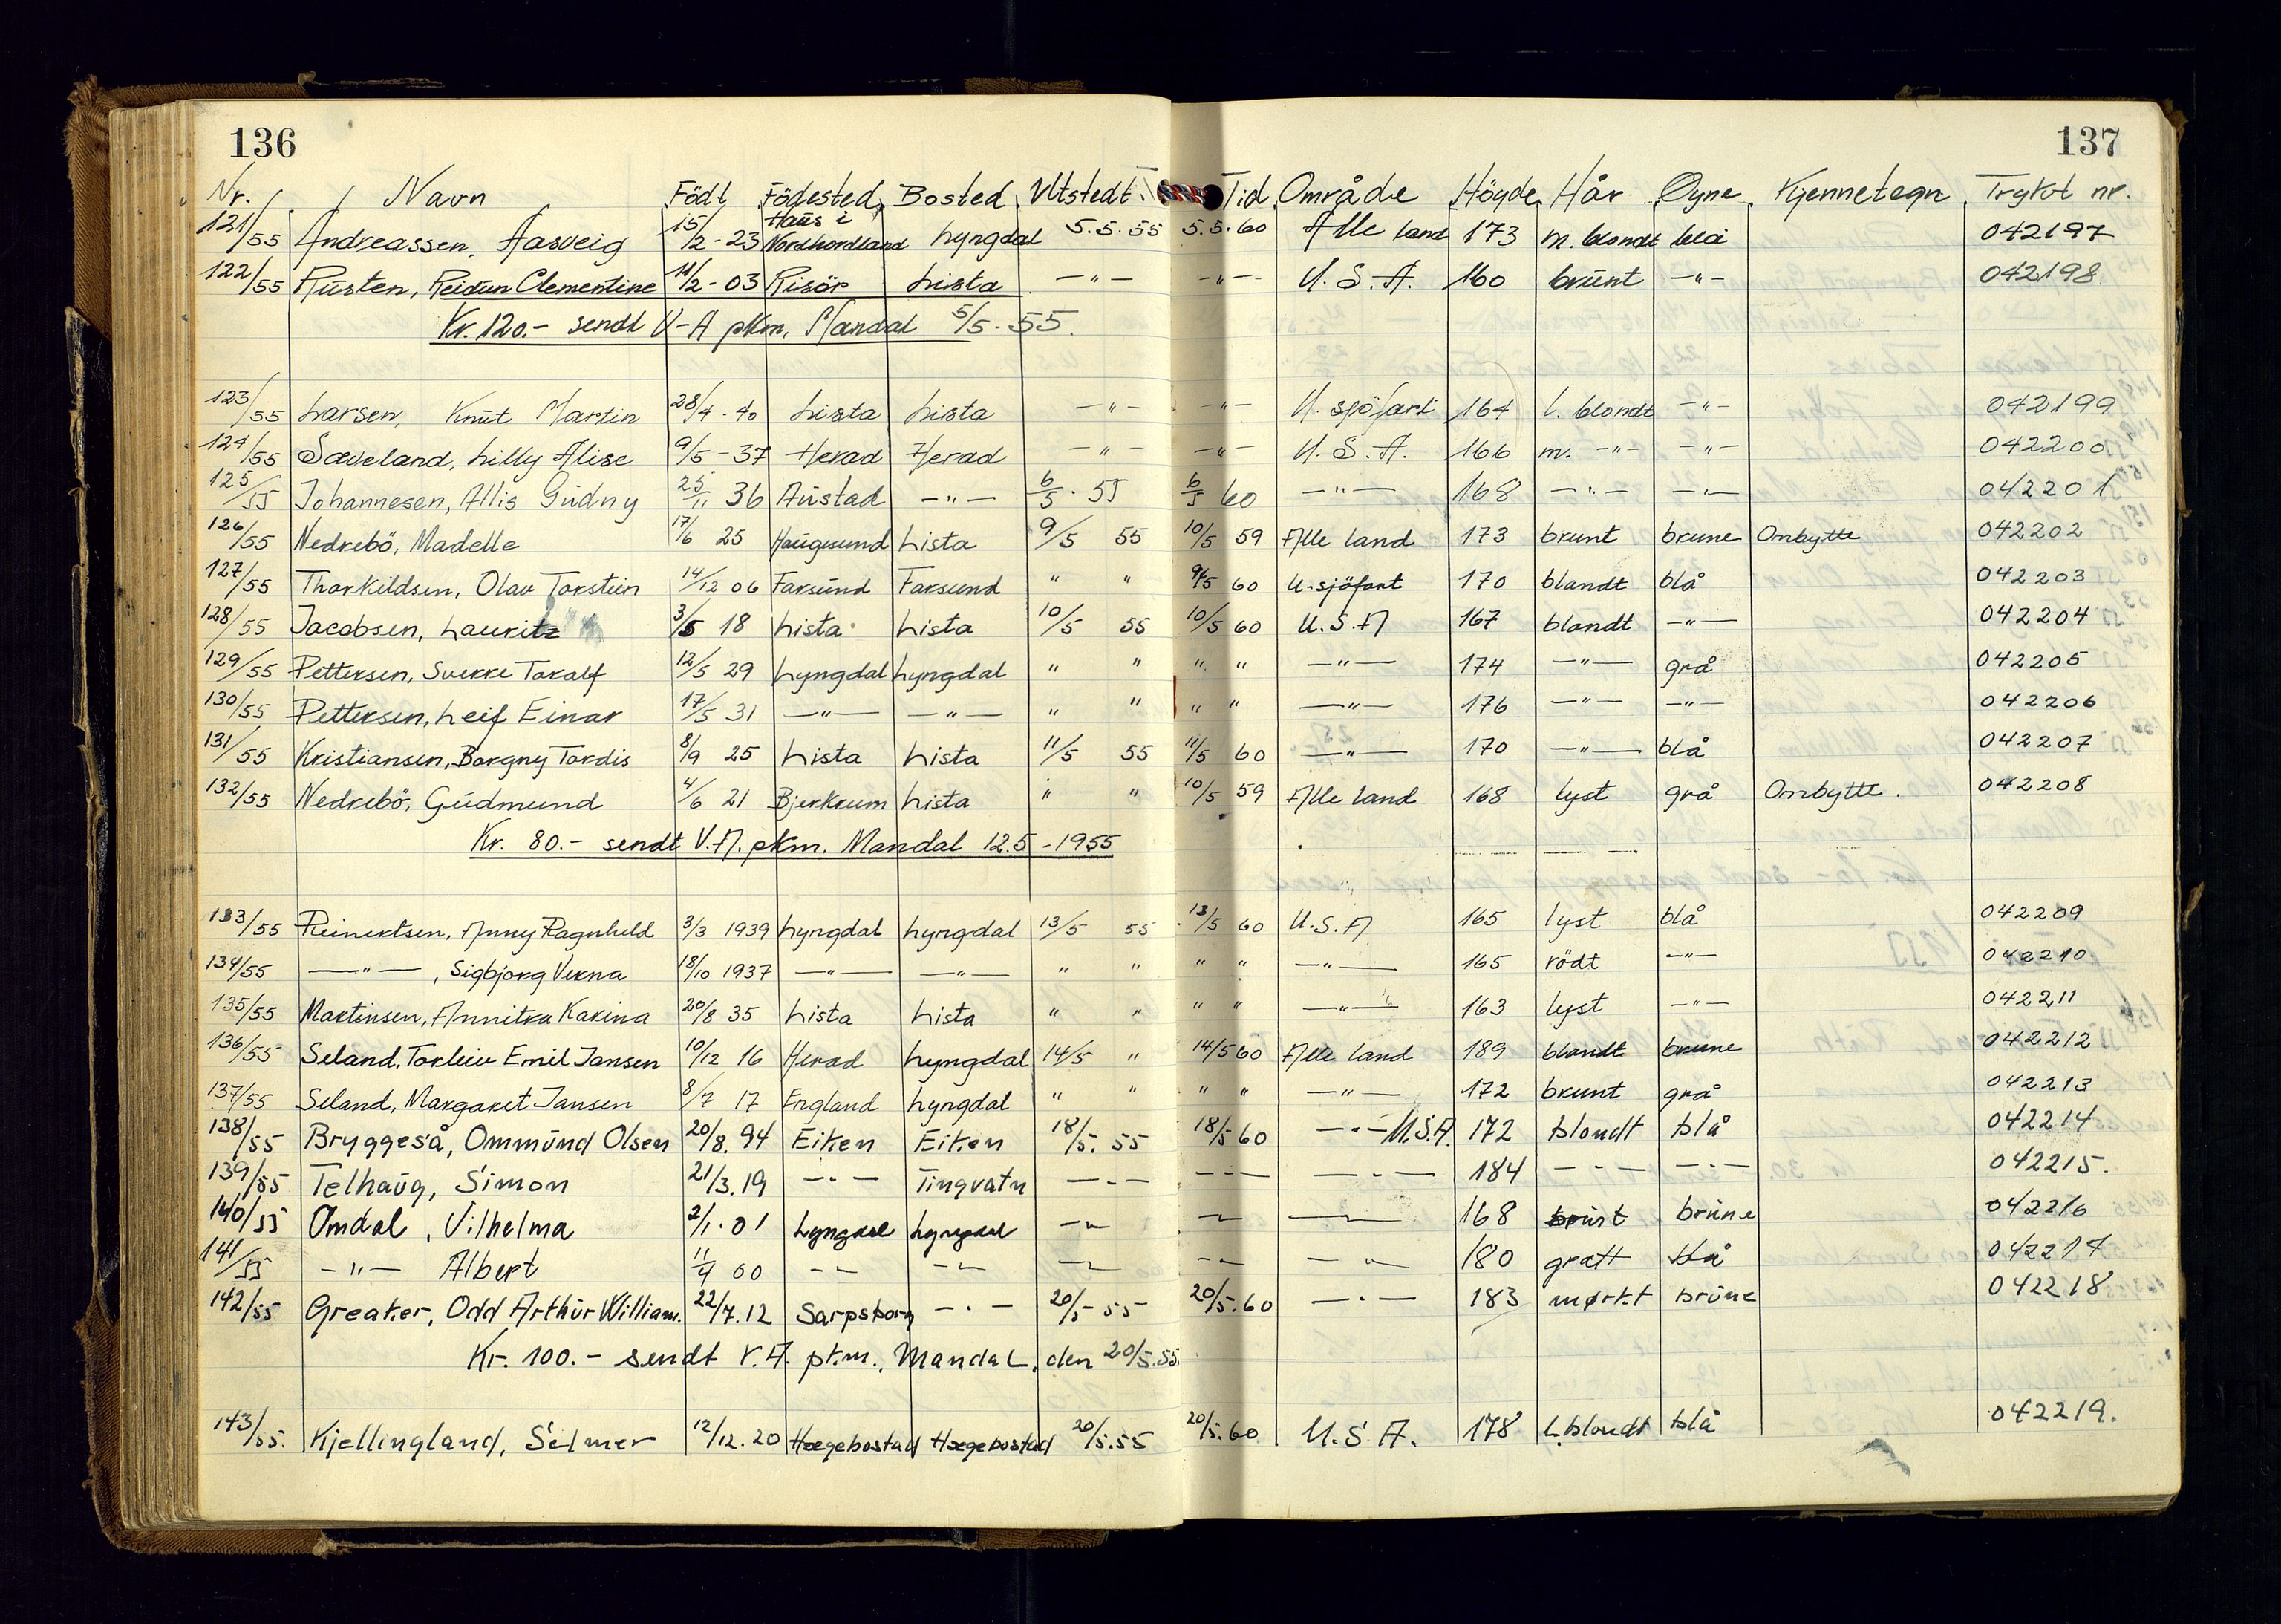 136
137
Nr. Navn Födt Födested Bosted Utstedt Tid Område Högde Hår Øyne Kjennetegn Trykt nr.
121/55 Andreassen, Aasveig 15/2-23 Haus i Nordhordland Lyngdal 5.5.55 5.5.60 Alle land 173 m. blondt blå 042197
122/55 Rusten, Reidun Clementine 11/2-03 Risör Lista -"- -"- U.S.A. 160 brunt -"- 042198
Kr. 120.- sendt V-A pkm, Mandal 5/5-55.
123/55 Larsen, Knut Martin 28/4-40 Lista Lista -"- -"- U. sjöfart 164 l. blondt -"- 042199
124/55 Sæveland, Lilly Alise 9/5-37 Herad Herad -"- -"- U.S.A. 166 m. -"- -"- 042200
125/55 Johannesen, Allis Gudny 25/11 36 Austad -"- 6/5.55 6/5 60 -"- 168 -"- -"- 042201
126/55 Nedrebö, Madelle 17/6 25 Haugesund Lista 9/5 55 10/5 59 Alle land 173 brunt brune Ombytte 042202
127/55 Thorkildsen, Olav Torstein 14/12 06 Farsund Farsund " " 9/5 60 U-sjöfart 170 blondt blå 042203
128/55 Jacobsen, Lauritz 3/5 18 Lista Lista 10/5 55 10/5 60 U.S.A 167 blondt -"- 042204
129/55 Pettersen, Sverre Toralf 12/5 29 Lyngdal Lyngdal " " " " -"- 174 -"- grå 042205
130/55 Pettersen, Leif Einar 17/5 31 -"- -"- " " " " -"- 176 -"- -"- 042206
131/55 Kristiansen, Borgny Tordis 8/9 25 Lista Lista 11/5 55 11/5 60 -"- 170 -"- blå 042207
132/55 Nedrebö, Gudmund 4/6 21 Bjerkrum Lista " " 10/5 59 Alle land 168 lyst grå Ombytte. 042208
Kr. 80.- sendt V.A. pkm. Mandal 12.5-1955
133/55 Reinertsen, Anny Ragnhild 3/3 1939 Lyngdal Lyngdal 13/5 55 13/5 60 U.S.A 165 lyst blå 042209
134/55 -"-, Sigbjorg Verna 18/10 1937 -"- -"- " " " " -"- 165 rödt -"- 042210
135/55 Martinsen, Annitra Karina 20/8 35 Lista Lista " " " " -"- 163 lyst -"- 042211
136/55 Seland, Torleiv Emil Jansen 10/12 16 Herad Lyngdal 14/5 " 14/5 60 Alle land 189 blondt brune 042212
137/55 Seland, Margaret Jansen 8/7 17 England Lyngdal " " " " -"- 172 brunt grå 042213
138/55 Bryggeså, Ommund Olsen 20/8.94 Eiken Eiken 18/5.55 18/5 60 -"- U.S.A. 172 blondt blå 042214
139/55 Telhaug, Simon 21/3.19 -"- Tingvatn -"- -"- -"- 184 -"- -"- 042215.
140/55 Omdal, Vilhelma 2/1.01 Lyngdal Lyngdal -"- -"- -"- 168 brunt brune 042216
141/55 -"- Albert 11/4 00 -"- -"- -"- -"- -"- 180 grått blå 042217
142/55 Greaker, Odd Arthur William. 22/7.12 Sarpsborg -"- 20/5-55 20/5.60 -"- 183 mørkt brune 042218
Kr. 100.- sendt V.A. pkm., Mandal, den 20/5.55.
143/55. Kjellingland, Selmer 12/12.20 Hægebostad Hægebostad 20/5.55 20/5.60 U.S.A. 178 L. blondt blå 042219.